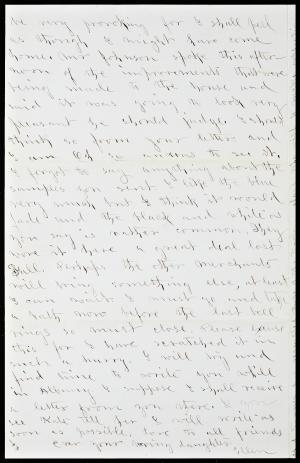 be very provoking for I shall feel
as though I might have come
home. Mr Johnson spoke this after
noon of the improvements that were
being made to the house and
said it was going to look very
pleasant he should judge. I should
think so from your letters and
I am Oh so anxious to see it.
I forgot to say anything about the
samples you sent I like the blue
very much but I think it would
fade and the black and white as
you say is rather common. They
wore it here a great deal last
Fall. Perhaps the other merchants
will bring something else, at least
I can wait. I must go and take
a bath now before the last bell
rings so must close. Please excuse
this for I have scratched it in
such a hurry. I will try and
find time to write you still
in Albany I suppose I shall receive
a letter from you there. If you
see Kate tell her I will write as
soon as possible. Love to all friends
Ever your loving daughter
Ellen